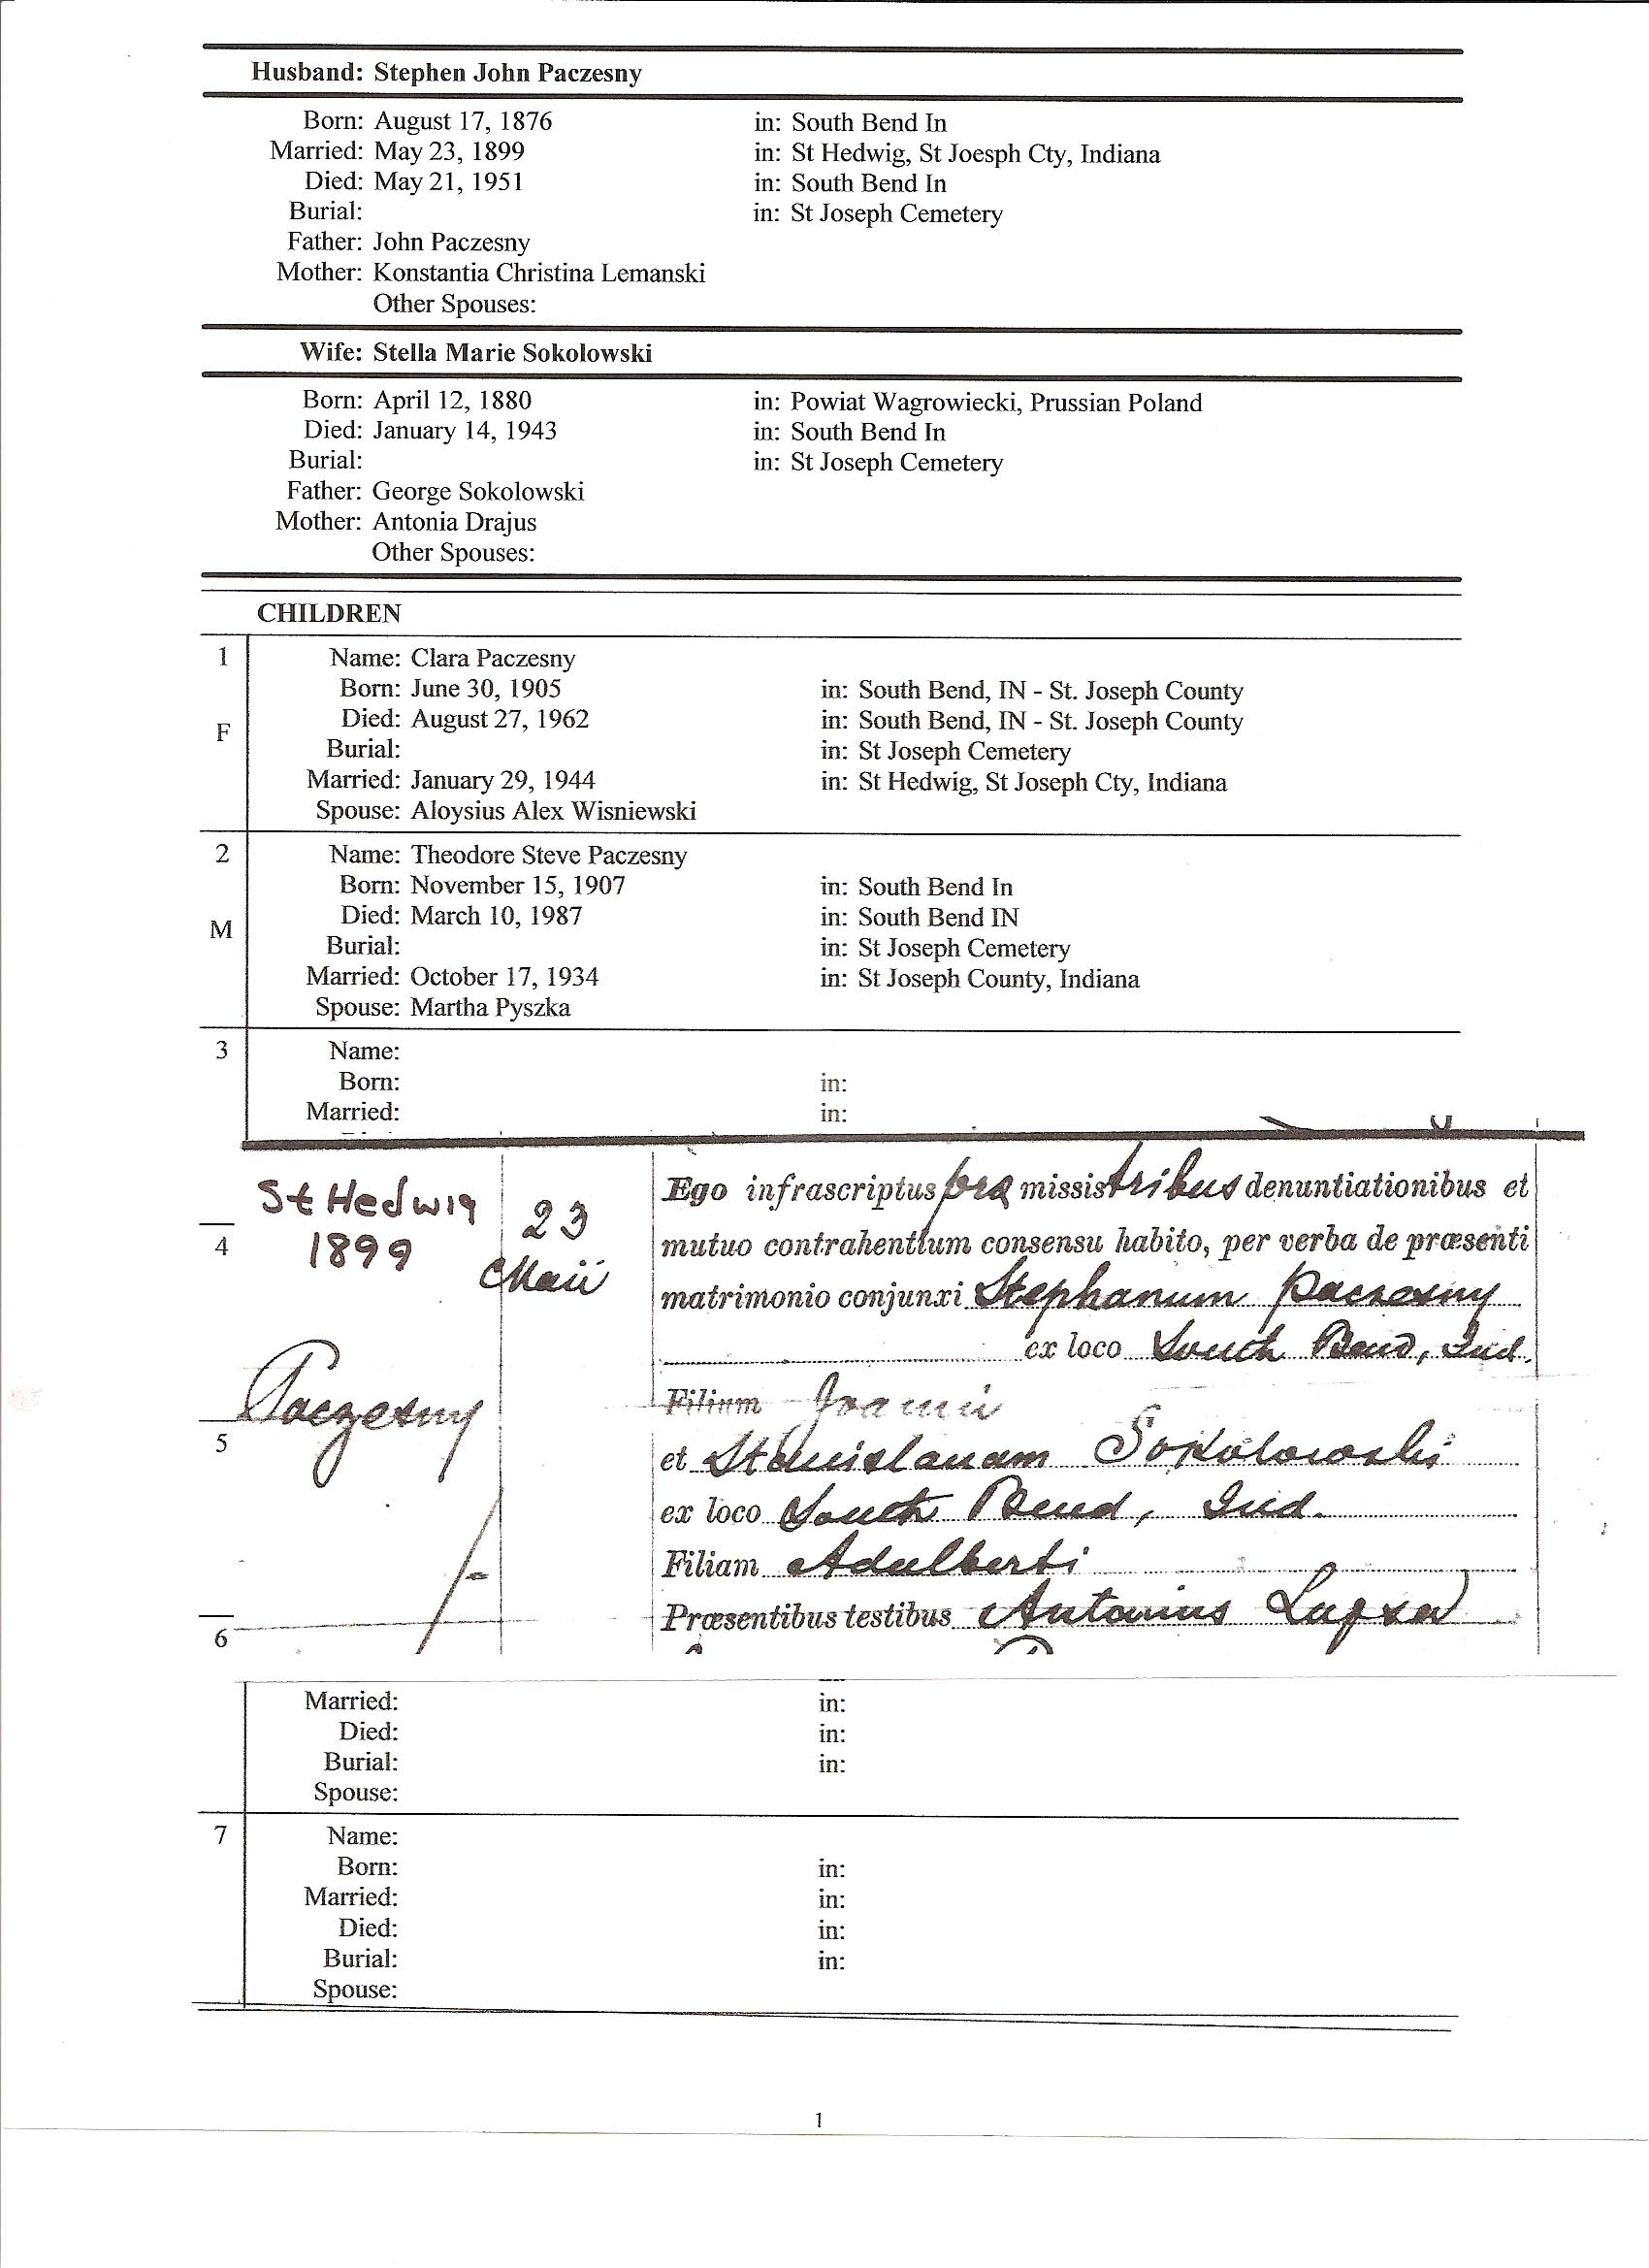 Husband: Stephen John Paczesny
Born: August 17, 1876 in: South Bend In
Married: May 23, 1899 in: St Hedwig, St Joesph Cty, Indiana
Died: May 21, 1951 in: South Bend In
Burial: in: St Joseph Cemetery
Father: John Paczesny
Mother: Konstantia Christina Lemanski
Other Spouses:
Wife: Stella Marie Sokolowski
Born: April 12, 1880 in: Powiat Wagrowiecki, Prussian Poland
Died: January 14, 1943 in: South Bend In
Burial: in: St Joseph Cemetery
Father: George Sokolowski
Mother: Antonia Drajus
Other Spouses:
CHILDREN
1 Name: Clara Paczesny
Born: June 30, 1905 in: South Bend, IN - St. Joseph County
F Died: August 27, 1962 in: South Bend, IN - St. Joseph County
Burial: in: St Joseph Cemetery
Married: January 29, 1944 in: St Hedwig, St Joseph Cty, Indiana
Spouse: Aloysius Alex Wisniewski
2 Name: Theodore Steve Paczesny
Born: November 15, 1907 in: South Bend In
M Died: March 10, 1987 in: South Bend IN
Burial: in: St Joseph Cemetery
Married: October 17, 1934 in: St Joseph County, Indiana
Spouse: Martha Pyszka
3 Name:
Born: in:
Married: in:
St Hedwig
4 1899
23
Maii
Paczesny
5
6
Ego infrascriptus præ missis tribus denuntiationibus et
mutuo contrahentium consensu habito, per verba de præsenti
matrimonio conjunxi Stephanum Paczesny
ex loco South Bend, Ind.
Filium Joannii
et Stanislauam Sokolowski
ex loco South Bend, Ind.
Filiam Adalberti
Præsentibus testibus Antonius
Married: in:
Died: in:
Burial: in:
Spouse:
7 Name:
Born: in:
Married: in:
Died: in:
Burial: in:
Spouse:
1